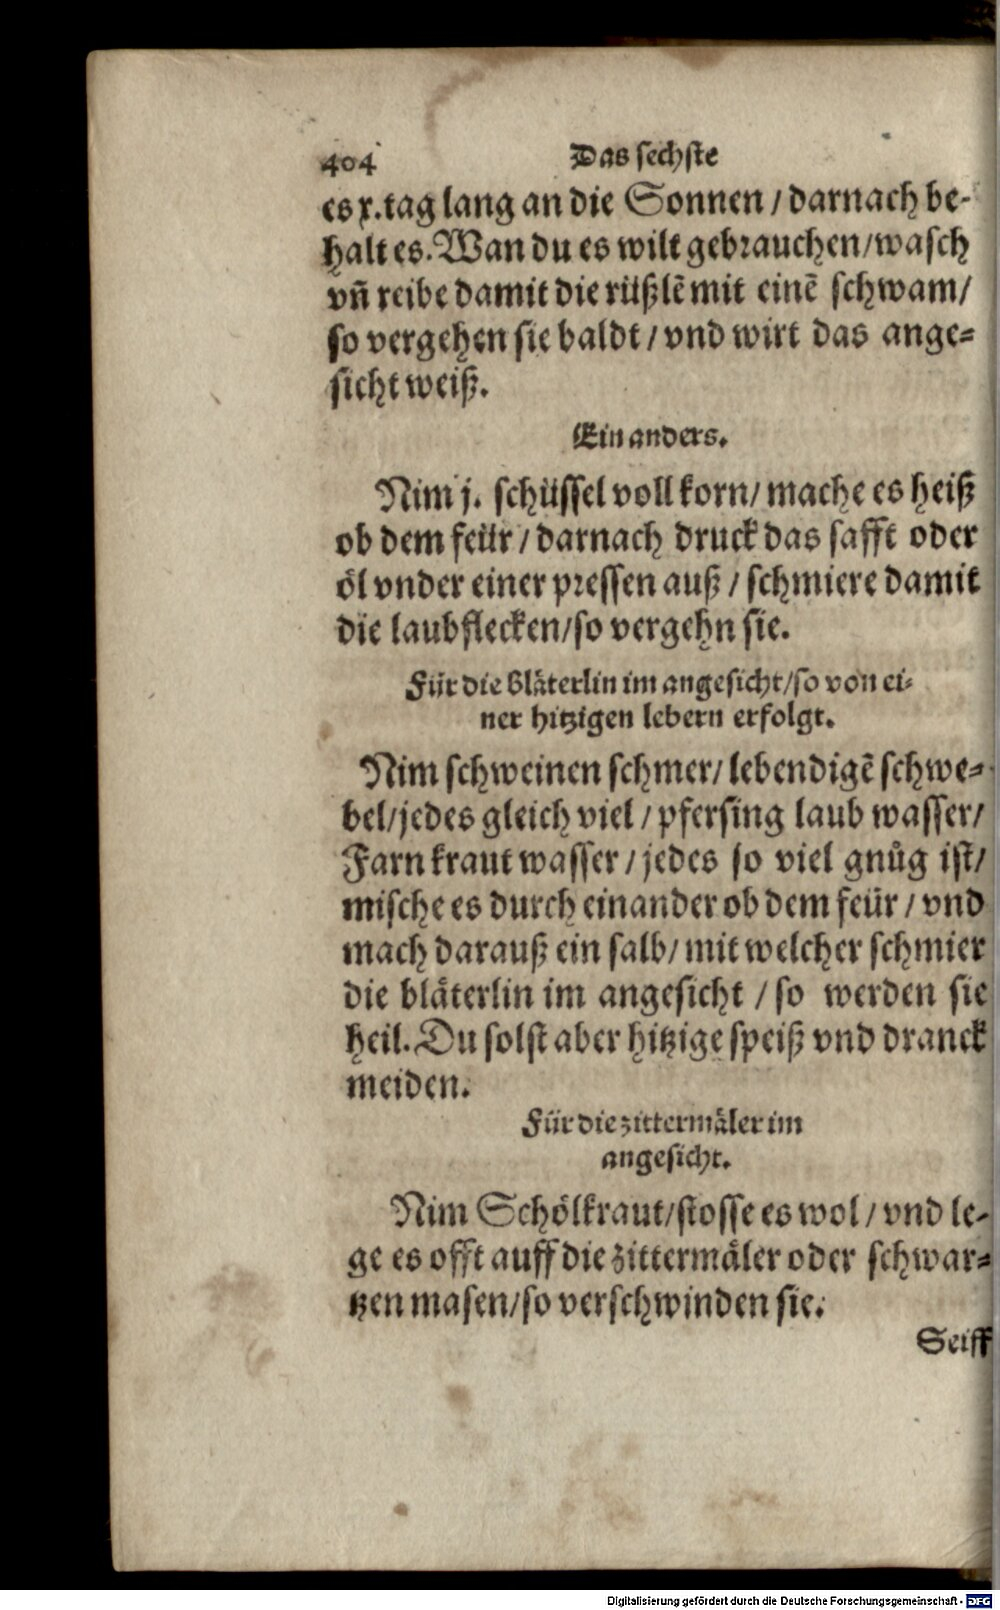 404 Das sechste
es x. tag lang an die Sonnen / darnach be-
halt es. Wan du es wilt gebrauchen / wasch
vñ reibe damit die rüßlẽ mit einẽ schwam /
so vergehen sie baldt / vnd wirt das ange-
sicht weiß.
Ein anders.
Nim j. schüssel voll korn / mache es heiß
ob dem feür / darnach druck das safft oder
öl vnder einer pressen auß / schmiere damit
die laubflecken / so vergehn sie.
Für die Bläterlin im angesicht / so von ei-
ner hitzigen lebern erfolgt.
Nim schweinen schmer / lebendigẽ schwe-
bel / jedes gleich viel / pfersing laub wasser /
Farn kraut wasser / jedes so viel gnůg ist /
mische es durch einander ob dem feür / vnd
mach darauß ein salb / mit welcher schmier
die bläterlin im angesicht / so werden sie
heil. Du solst aber hitzige speiß vnd dranck
meiden.
Für die zittermäler im
angesicht.
Nim Schölkraut / stosse es wol / vnd le-
ge es offt auff die zittermäler oder schwar-
tzen masen / so verschwinden sie.
Seiff
Digitalisierung gefördert durch die Deutsche Forschungsgemeinschaft - DFG